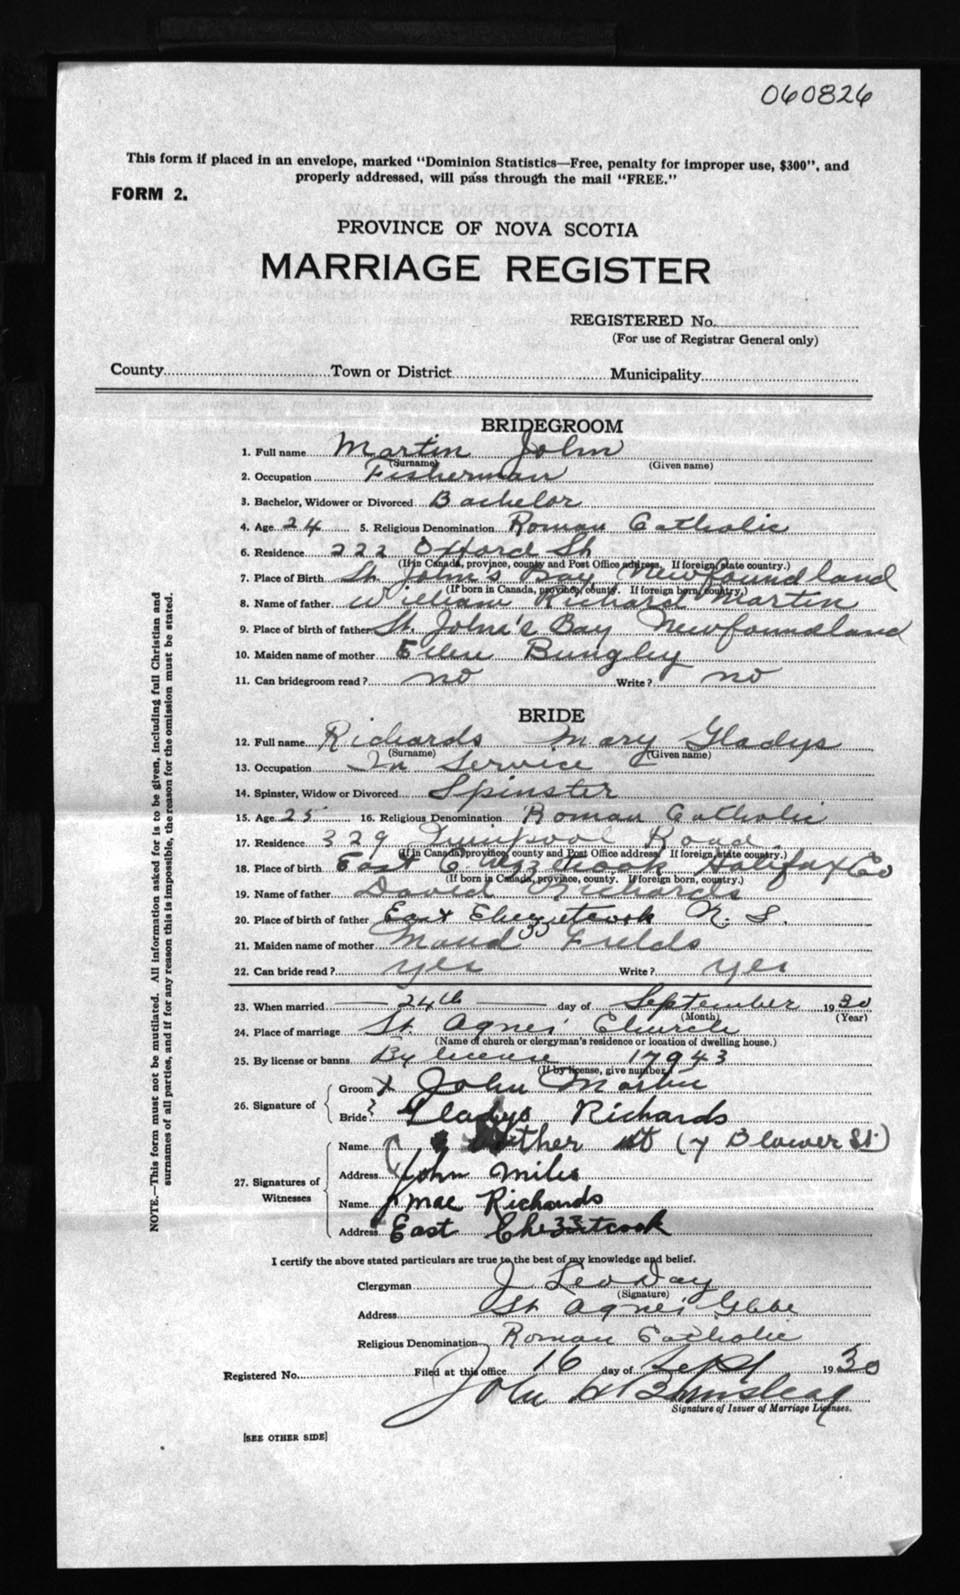 060826
This form if placed in an envelope, marked "Dominion Statistics—Free, penalty for improper use, $300", and
properly addressed, will pass through the mail "FREE."
FORM 2.
PROVINCE OF NOVA SCOTIA
MARRIAGE REGISTER
REGISTERED No.
(For use of Registrar General only)
County Town or District Municipality
BRIDEGROOM
1. Full name Martin John
(Surname) (Given name)
2. Occupation Fisherman
3. Bachelor, Widower or Divorced Bachelor
4. Age 24 5. Religious Denomination Roman Catholic
6. Residence 222 Oxford St
(If in Canada, province, county and Post Office address. If foreign, state country.)
7. Place of Birth St. John's Bay Newfoundland
(If born in Canada, province, county. If foreign born, country.)
8. Name of father William Richard Martin
9. Place of birth of father St. John's Bay Newfoundland
10. Maiden name of mother Ellen
11. Can bridegroom read? no Write? no
BRIDE
12. Full name Richards Mary Gladys
(Surname) (Given name)
13. Occupation In Service
14. Spinster, Widow or Divorced Spinster
15. Age 25 16. Religious Denomination Roman Catholic
17. Residence 329 Quinpool Road.
(If in Canada, province, county and Post Office address. If foreign, state country.)
18. Place of birth East Chezzetcook Halifax Co
(If born in Canada, province, county. If foreign born, country.)
19. Name of father David Richards
20. Place of birth of father East Chezzetcook N. S.
21. Maiden name of mother Maud Fields
22. Can bride read? yes Write? yes
23. When married 24th day of September 1930
(Month) (Year)
24. Place of marriage St. Agnes' Church
(Name of church or clergyman's residence or location of dwelling house.)
25. By license or banns By license 17943
(If by license, give number)
26. Signature of Groom X John Martin
Bride Gladys Richards
27. Signatures of Witnesses
Name St (7 Blower St.)
Address John Miles
Name Mae Richards
Address East Chezzetcook
I certify the above stated particulars are true to the best of my knowledge and belief.
Clergyman J Leo Day
(Signature)
Address St. Agnes' Glebe
Religious Denomination Roman Catholic
Registered No. Filed at this office 16 day of Sept 1930
John
Signature of Issuer of Marriage Licenses.
[SEE OTHER SIDE]
NOTE.—This form must not be mutilated. All information asked for is to be given, including full Christian and
surnames of all parties, and if for any reason this is impossible, the reason for the omission must be stated.